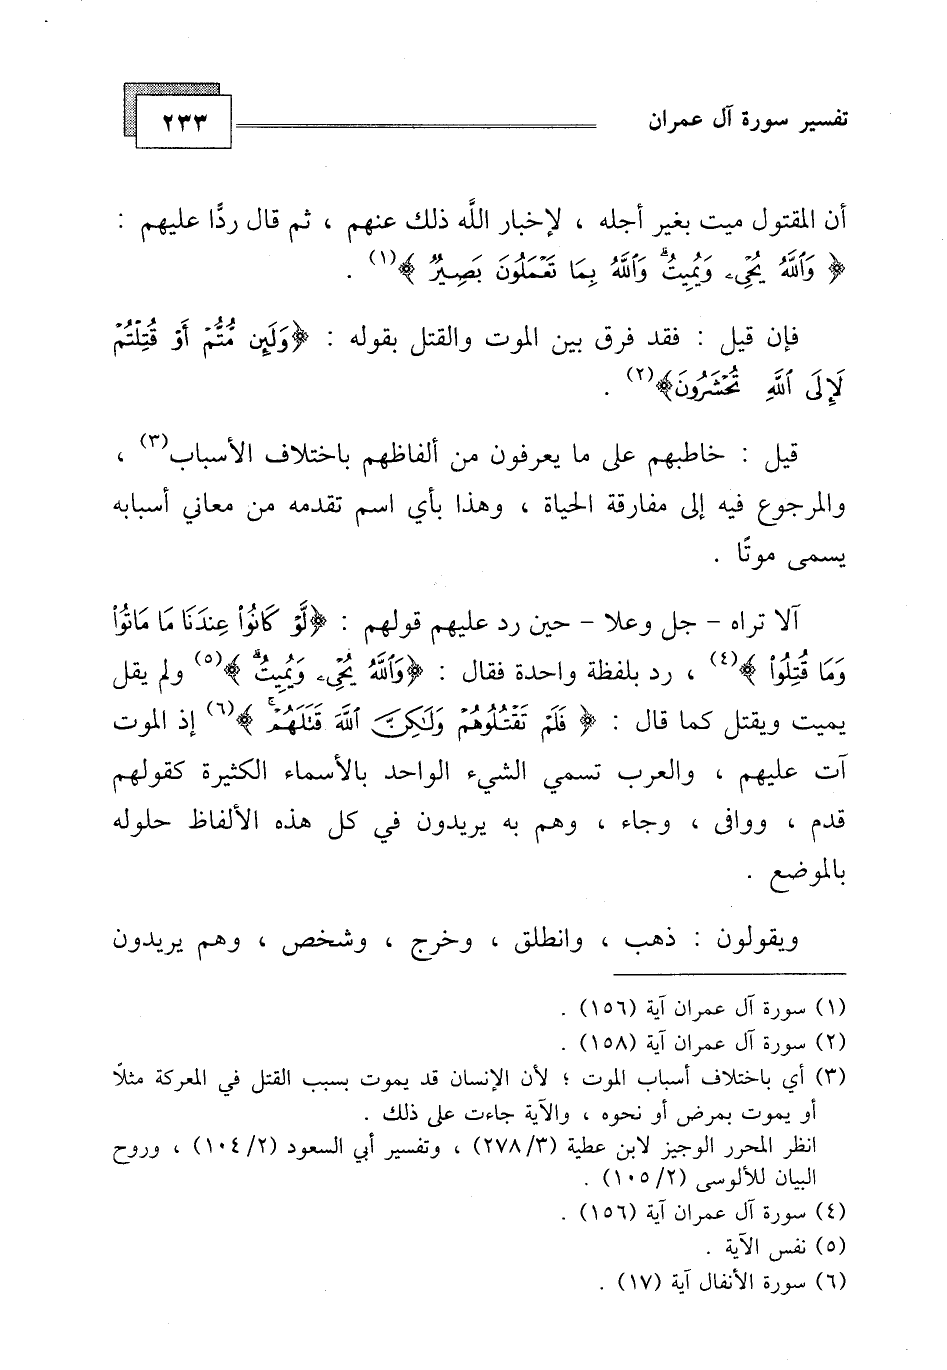 تفسير سورة آل عمران
٢٣٣
أن المقتول ميت بغير أجله ، لإخبار اللَّه ذلك عنهم ، ثم قال ردًّا عليهم :
﴿ وَٱللَّهُ يُحْىِۦ وَيُمِيتُ ۗ وَٱللَّهُ بِمَا تَعْمَلُونَ بَصِيرٌ ﴾(١) .
فإن قيل : فقد فرق بين الموت والقتل بقوله : ﴿وَلَئِن مُّتُّمْ أَوْ قُتِلْتُمْ
لَإِلَى ٱللَّهِ تُحْشَرُونَ﴾(٢) .
قيل : خاطبهم على ما يعرفون من ألفاظهم باختلاف الأسباب(٣) ،
والمرجوع فيه إلى مفارقة الحياة ، وهذا بأي اسم تقدمه من معاني أسبابه
يسمى موتًا .
آلا تراه - جل وعلا - حين رد عليهم قولهم : ﴿لَّوْ كَانُوا۟ عِندَنَا مَا مَاتُوا۟
وَمَا قُتِلُوا۟ ﴾(٤) ، رد بلفظة واحدة فقال : ﴿وَٱللَّهُ يُحْىِۦ وَيُمِيتُ ۗ ﴾(٥) ولم يقل
يميت ويقتل كما قال : ﴿ فَلَمْ تَقْتُلُوهُمْ وَلَـٰكِنَّ ٱللَّهَ قَتَلَهُمْ ۚ ﴾(٦) إذ الموت
آت عليهم ، والعرب تسمي الشيء الواحد بالأسماء الكثيرة كقولهم
قدم ، ووافى ، وجاء ، وهم به يريدون في كل هذه الألفاظ حلوله
بالموضع .
ويقولون : ذهب ، وانطلق ، وخرج ، وشخص ، وهم يريدون
(١) سورة آل عمران آية (١٥٦) .
(٢) سورة آل عمران آية (١٥٨) .
(٣) أي باختلاف أسباب الموت ؛ لأن الإنسان قد يموت بسبب القتل في المعركة مثلًا
أو يموت بمرض أو نحوه ، والآية جاءت على ذلك .
انظر المحرر الوجيز لابن عطية (٢٧٨/٣) ، وتفسير أبي السعود (١٠٤/٢) ، وروح
البيان للألوسى (١٠٥/٢) .
(٤) سورة آل عمران آية (١٥٦) .
(٥) نفس الآية .
(٦) سورة الأنفال آية (١٧) .